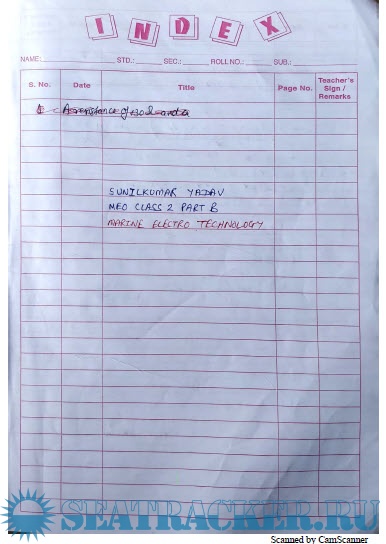 INDEX
NAME: STD.: SEC.: ROLL NO.: SUB.:
S. No. Date Title Page No. Teacher's Sign / Remarks
SUNILKUMAR YADAV
MEO CLASS 2 PART B
MARINE ELECTRO TECHNOLOGY
SEATRACKER.RU
Scanned by CamScanner